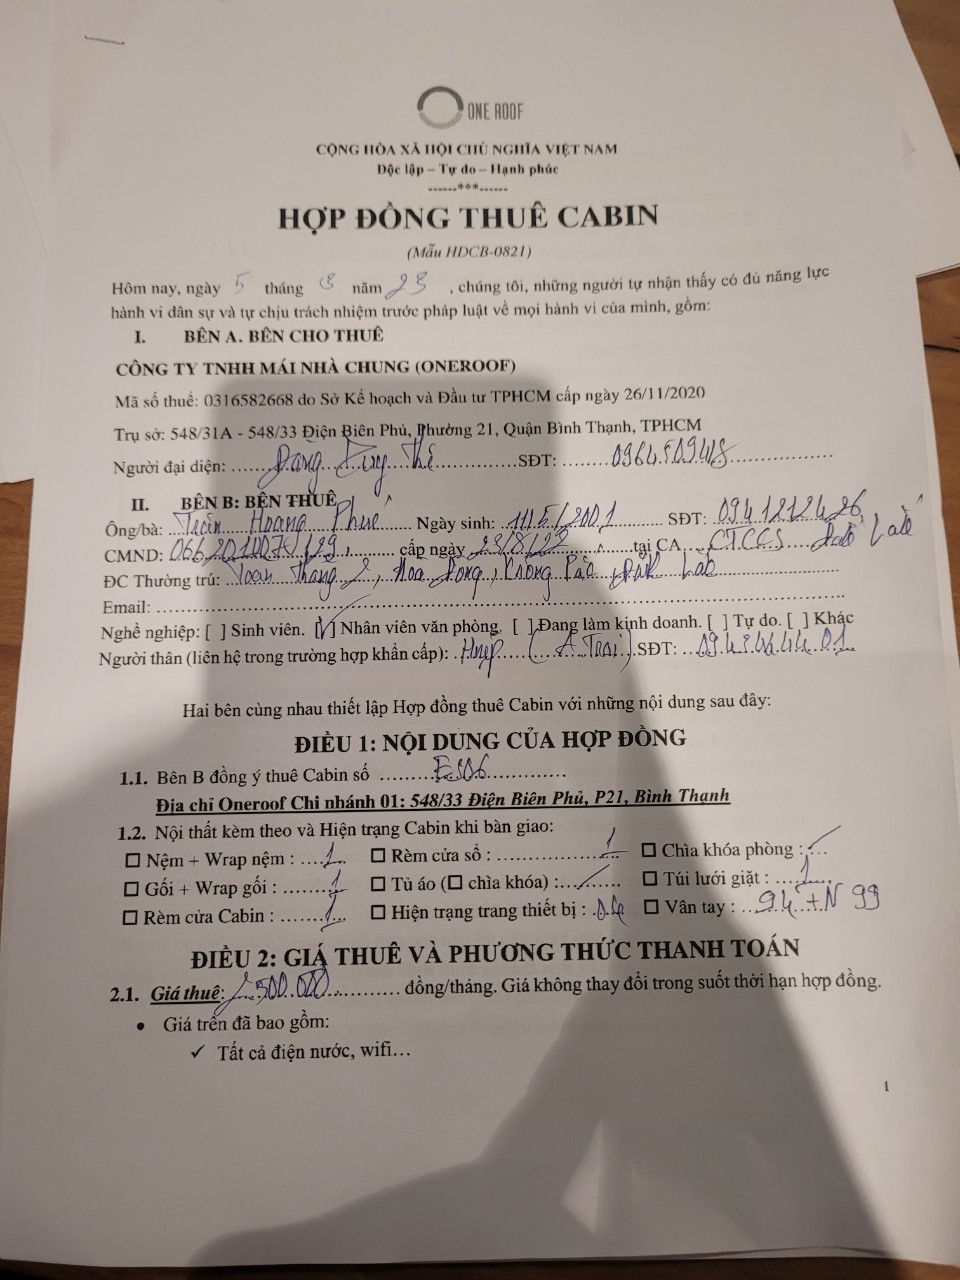 ONE ROOF
CỘNG HÒA XÃ HỘI CHỦ NGHĨA VIỆT NAM
Độc lập – Tự do – Hạnh phúc
------***------
HỢP ĐỒNG THUÊ CABIN
(Mẫu HDCB-0821)
Hôm nay, ngày 5 tháng 8 năm 23, chúng tôi, những người tự nhận thấy có đủ năng lực
hành vi dân sự và tự chịu trách nhiệm trước pháp luật về mọi hành vi của mình, gồm:
I. BÊN A. BÊN CHO THUÊ
CÔNG TY TNHH MÁI NHÀ CHUNG (ONEROOF)
Mã số thuế: 0316582668 do Sở Kế hoạch và Đầu tư TPHCM cấp ngày 26/11/2020
Trụ sở: 548/31A - 548/33 Điện Biên Phủ, Phường 21, Quận Bình Thạnh, TPHCM
Người đại diện: Đặng SĐT:
II. BÊN B: BÊN THUÊ
Ông/bà: Trần Hoàng Ngày sinh: 11/5/2001 SĐT: 0941212426
CMND: cấp ngày tại CA
ĐC Thường trú: Toàn Thắng 2, Hòa Đông, Krông Pắc, Đắk Lắk
Email:
Nghề nghiệp: [ ] Sinh viên. [✓] Nhân viên văn phòng. [ ] Đang làm kinh doanh. [ ] Tự do. [ ] Khác
Người thân (liên hệ trong trường hợp khẩn cấp): (A. Trai) SĐT:
Hai bên cùng nhau thiết lập Hợp đồng thuê Cabin với những nội dung sau đây:
ĐIỀU 1: NỘI DUNG CỦA HỢP ĐỒNG
1.1. Bên B đồng ý thuê Cabin số
Địa chỉ Oneroof Chi nhánh 01: 548/33 Điện Biên Phủ, P21, Bình Thạnh
1.2. Nội thất kèm theo và Hiện trạng Cabin khi bàn giao:
☐ Nệm + Wrap nệm : 1 ☐ Rèm cửa sổ : 1 ☐ Chìa khóa phòng :
☐ Gối + Wrap gối : 1 ☐ Tủ áo (☐ chìa khóa) : ☐ Túi lưới giặt : 1
☐ Rèm cửa Cabin : 1 ☐ Hiện trạng trang thiết bị : ☐ Vân tay : 94 + N 99
ĐIỀU 2: GIÁ THUÊ VÀ PHƯƠNG THỨC THANH TOÁN
2.1. Giá thuê: đồng/tháng. Giá không thay đổi trong suốt thời hạn hợp đồng.
• Giá trên đã bao gồm:
✓ Tất cả điện nước, wifi…
1